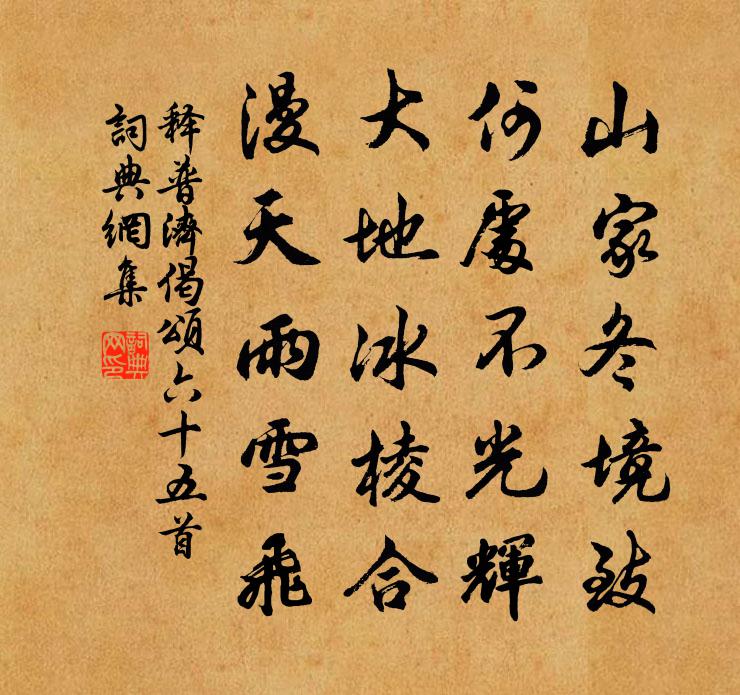 山家冬境致
何處不光輝
大地冰棱合
漫天雨雪飛
释普濟偈頌六十五首
詞典網集
詞典
网印